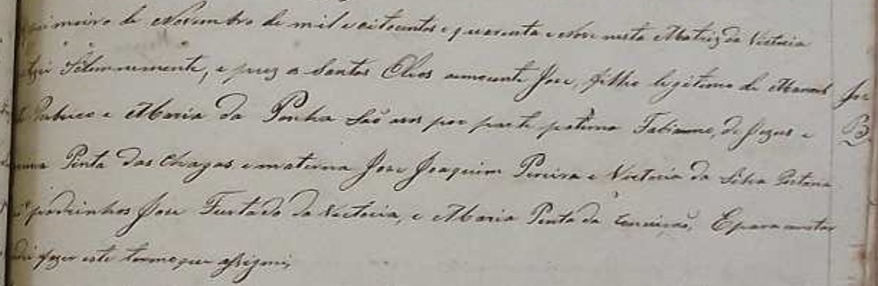 primeiro de Novembro de mil e oitocentos e quarenta e nove nesta Matriz da Victoria
Solemnemente, e puz os Santos Oleos José, filho legitimo de Manoel
e Maria da Penha São avos por parte paterna Fabianno de Jezus e
Pinta das Chagas e materna Jose Joaquim Pereira e Victoria da Silva
padrinhos Jose Furtado da Victoria, e Maria Pinta da Conceicão, E para constar
fazer este termo que assignei,